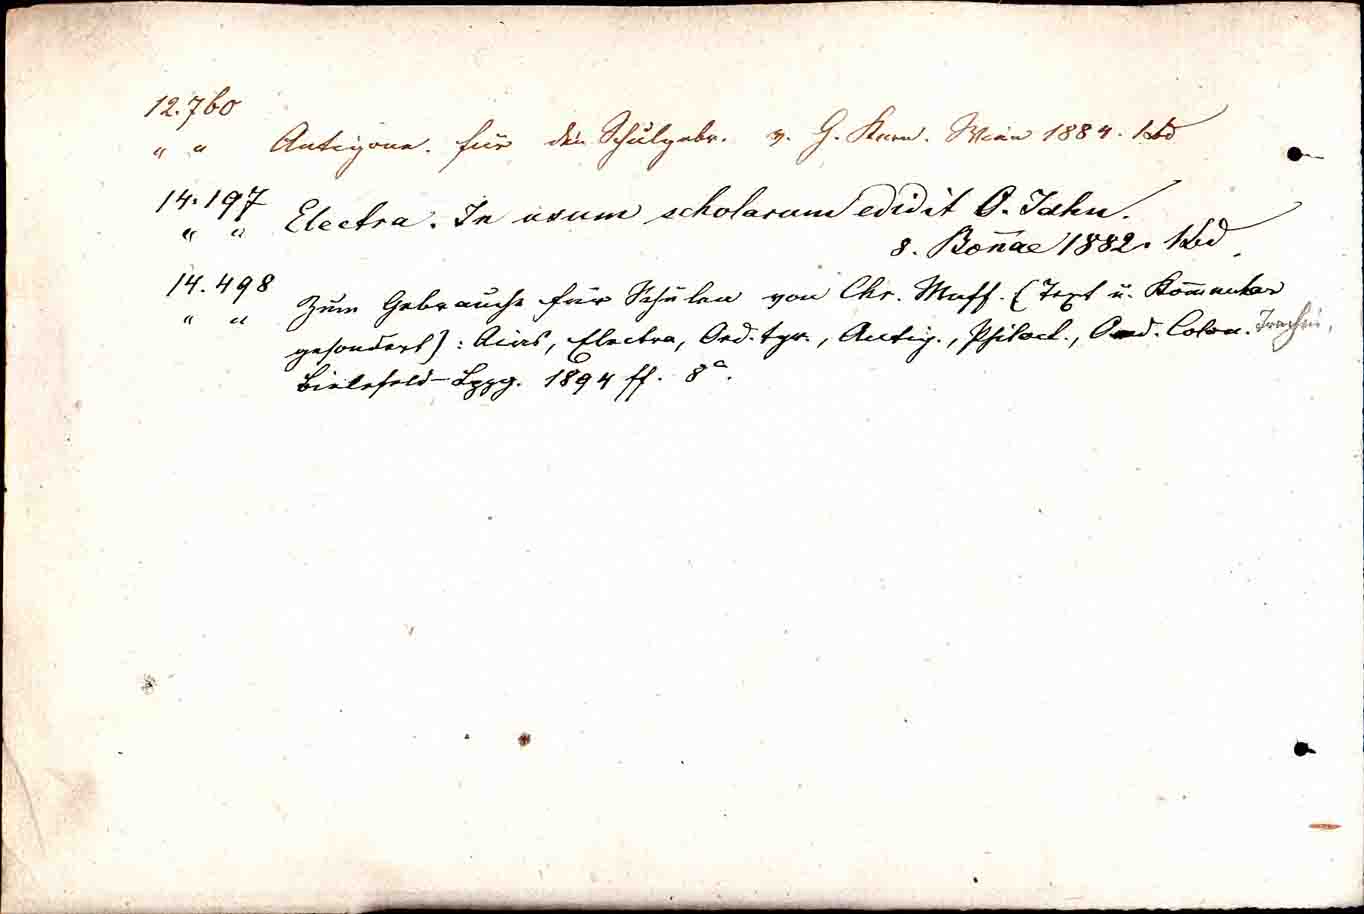 12.760
" " Antigone. für den Schulgebr. v. G. Kern. Wien 1884. 1 Bd
14.197
" " Electra. In usum scholarum edidit O. Jahn.
8. Bonnae 1882. 1 Bd.
14.498
" " Zum Gebrauche für Schulen von Chr. Muff. (Text u. Kom̅entar
gesondert): Aias, Electra, Oed. tyr., Antig., Philoct., Oed. Colon. Trachin,
Bielefeld-Lpzg. 1894 ff. 8°.